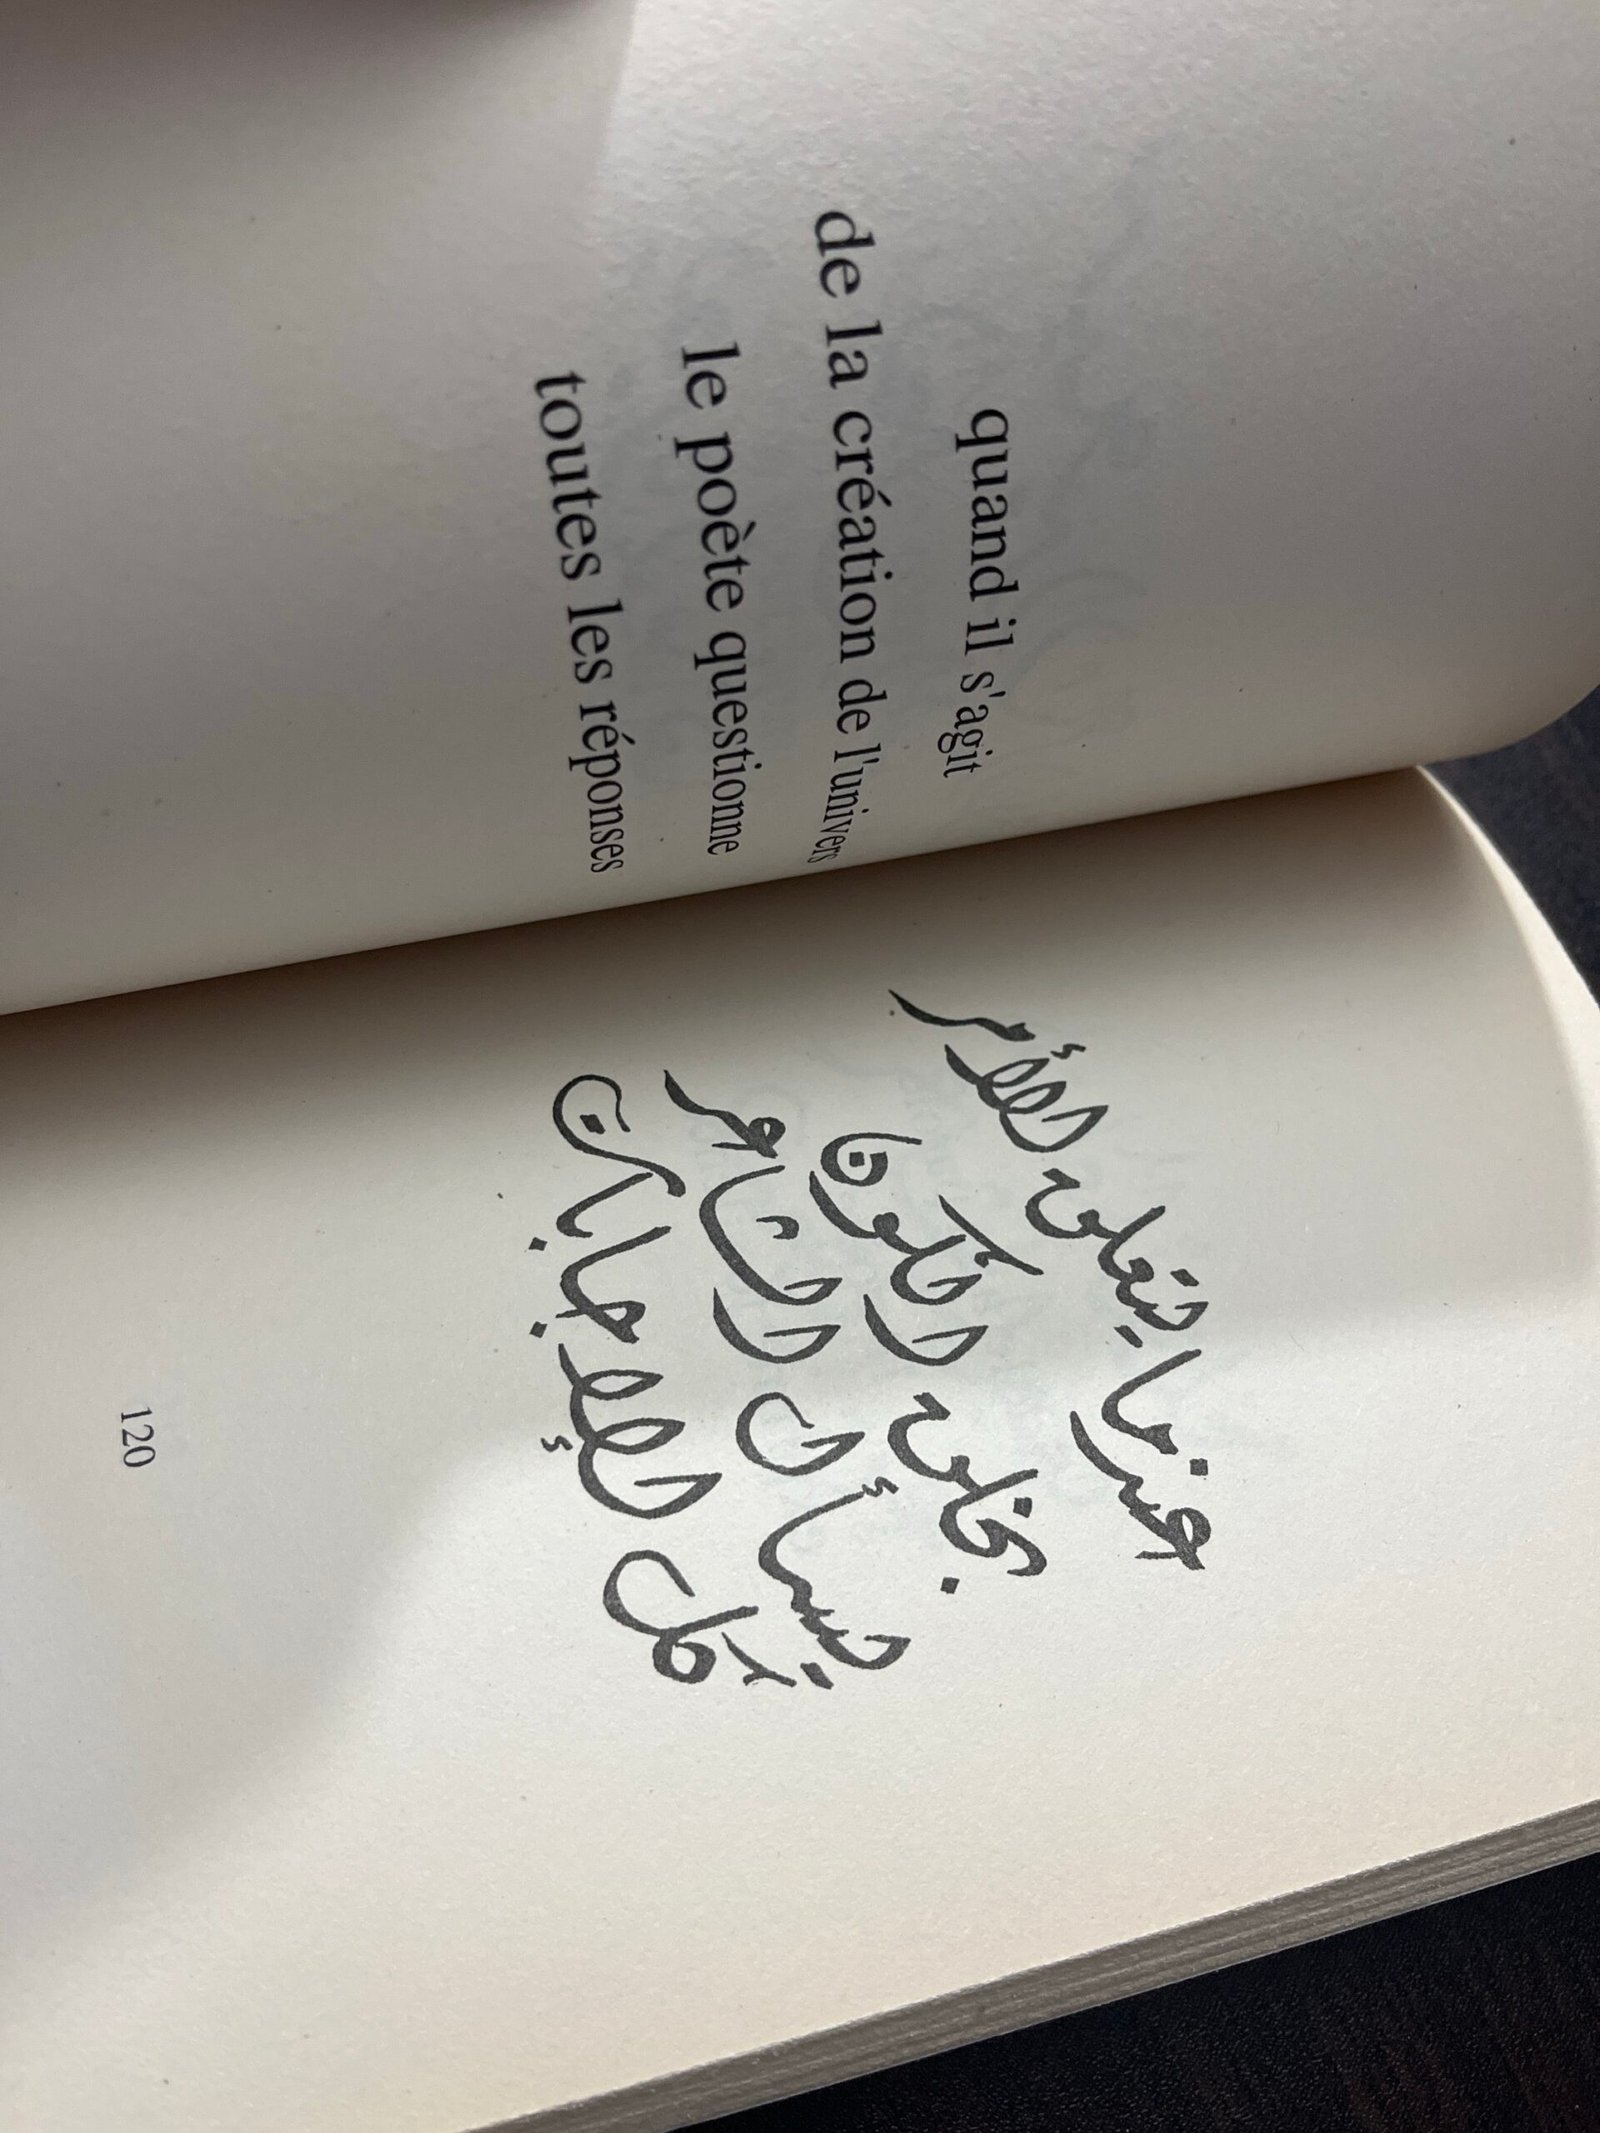 quand il s'agit
de la création de l'univers
le poète questionne
toutes les réponses
عندما يتعلق الأمر
بخلق الكون
يسأل الشاعر
كل الإجابات
120